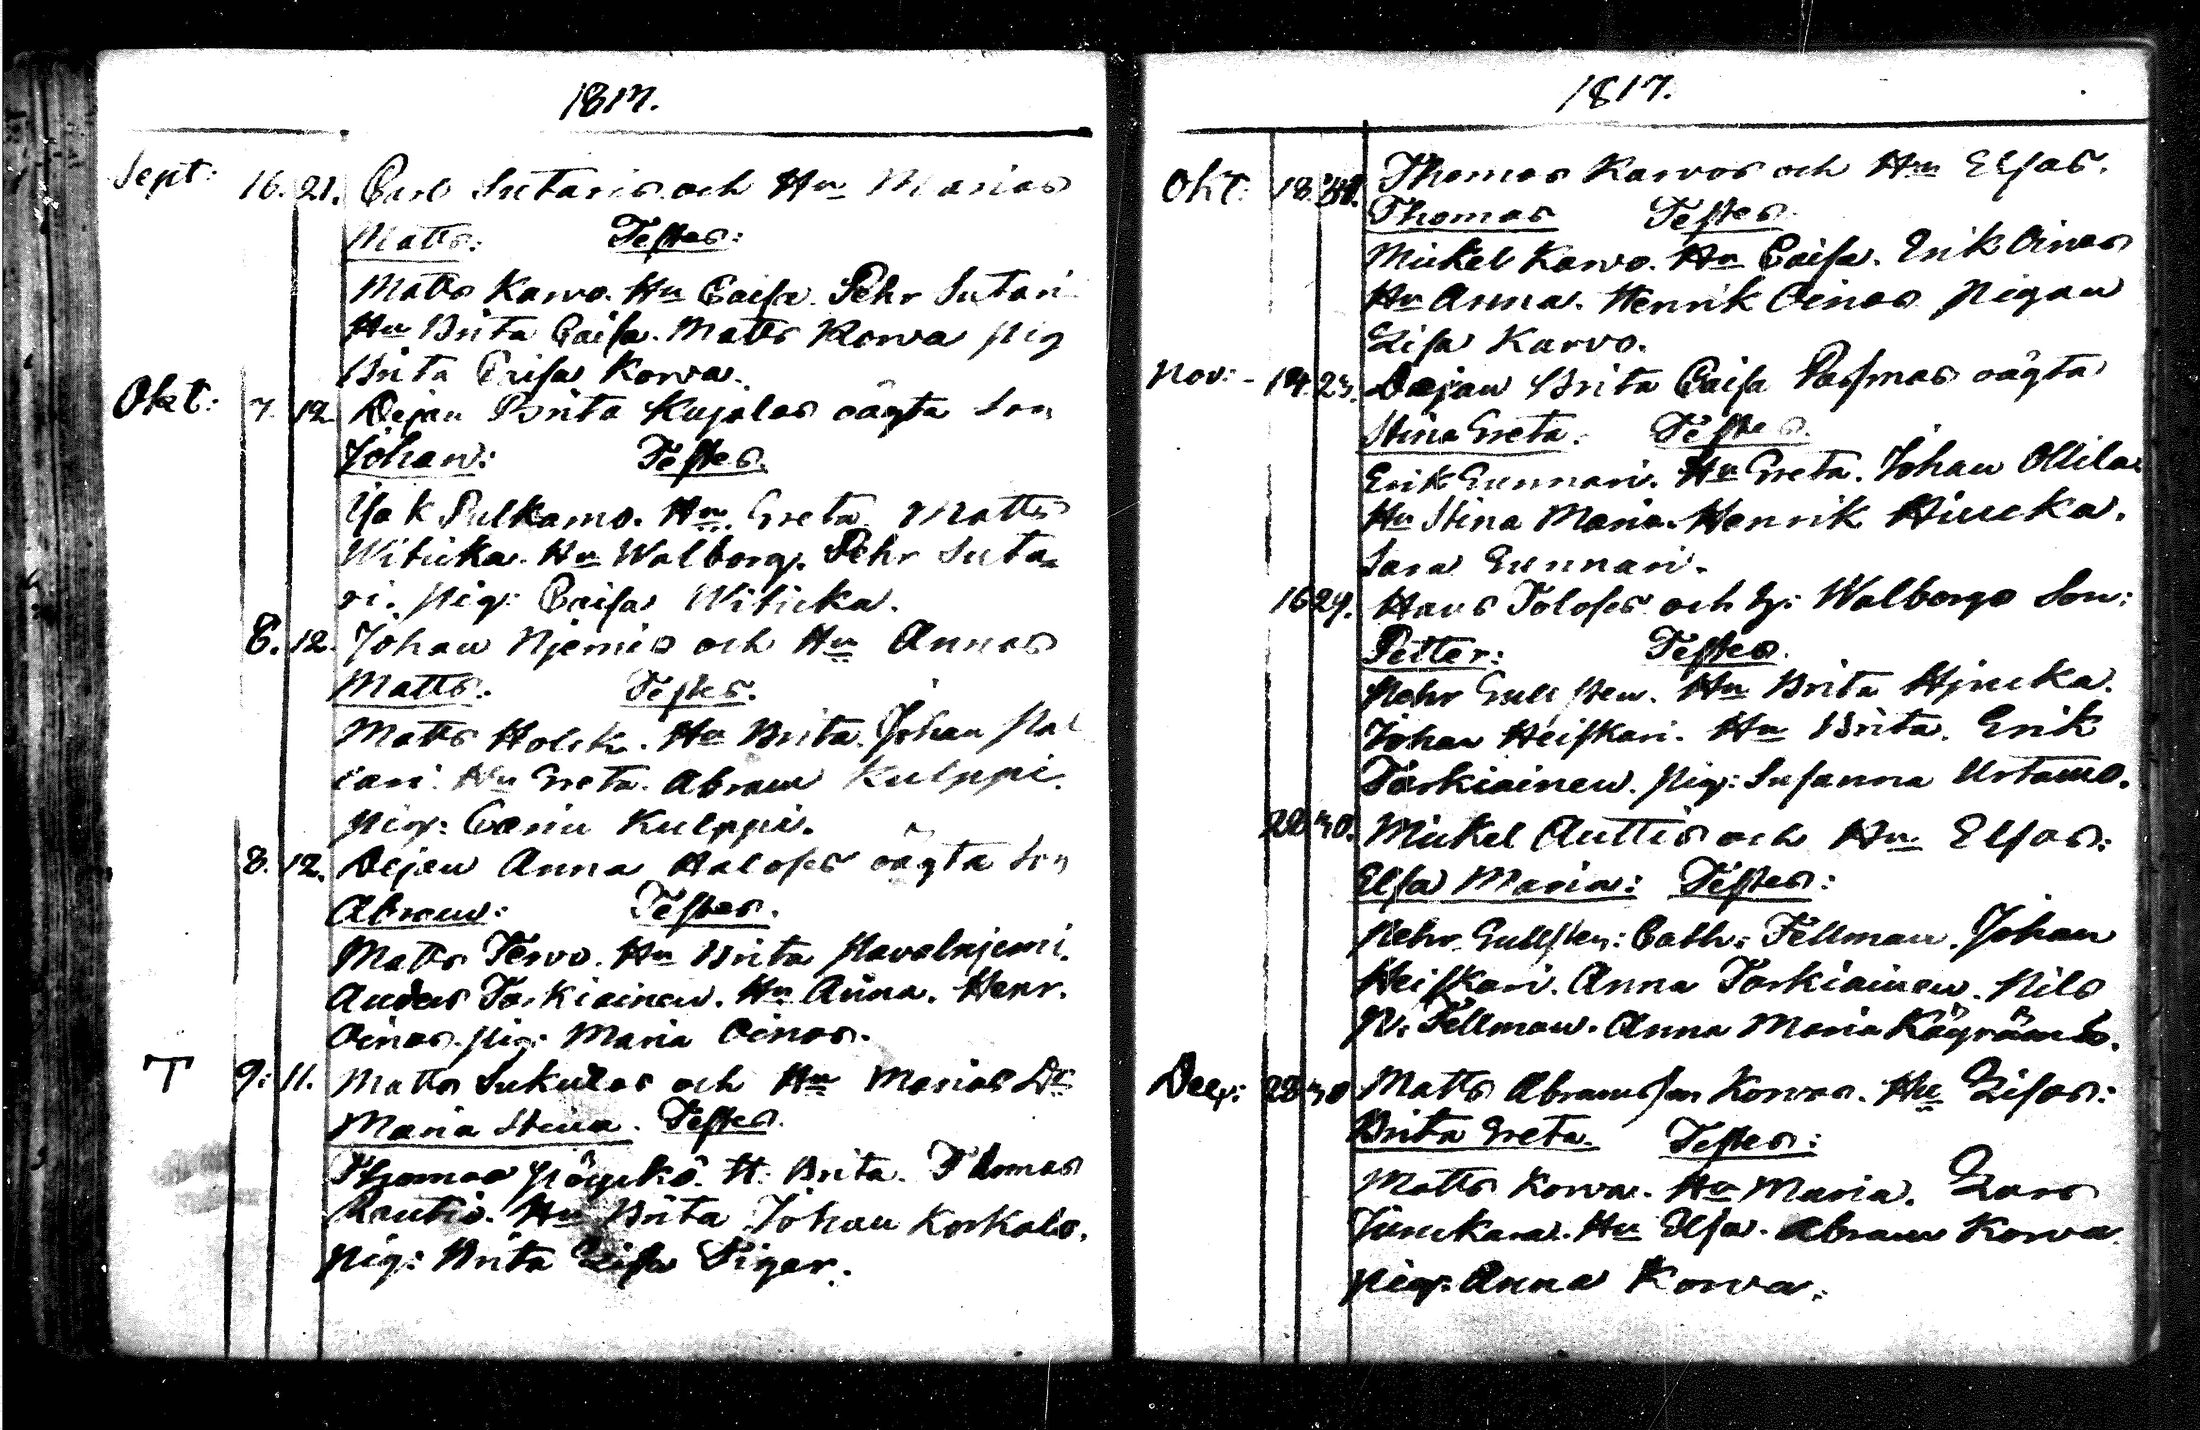 1817.
Sept: 16. 21. Carl Sutaris och Hu Marias
Matts: Testes:
Matts Karvo. Hu Caisa. Pehr Sutari
Hu Brita Caisa. Matts Korva pig
Brita Caisa Korva.
Okt: 7. 12. Dejan Brita Kujalas oägta Son
Johan: Testes.
Isak Pulkamo. Hu Greta Matts
Witicka. Hu Walborg. Pehr Suta
ri. pig: Caisa Witicka.
8. 12. Johan Njemis och Hu Annas
Matts. Testes.
Matts Holck. Hu Brita. Johan
Hu Greta. Abram Kulppi.
pig: Carin Kulppi.
8. 12. Dejan Anna Haloses oägta Son
Abram: Testes.
Matts Tervo. Hu Brita Pavalnjemi.
Anders Torkiainen. Hu Anna. Henr.
Oinas. pig: Maria Oinas.
T 9: 11. Matts Sukulas och Hu Marias Dr
Maria Stina. Testes.
Thomas Pöyckö. H: Brita. Thomas
Rautio. Hu Brita Johan Korkalo.
pig: Brita Lisa Piger.
1817.
Okt: 18. Thomas Karvos och Hu Elsas.
Thomas Testes
Mickel Karvo. Hu Caisa. Erik Oinas
Hu Anna. Henrik Oinas Pigan
Lisa Karvo.
Nov: 14. 23. Dejan Brita Caisa Pasmas oägta
Stina Greta. Testes.
Erik Gunnari. Hu Greta. Johan Ollila
Hu Stina Maria. Henrik Hiucka.
Sara Gunnari.
16 29. Hans Toloses och Hu: Walborgs Son:
Petter: Testes.
Pehr Gullsten. Hu Brita Hjucka.
Johan Heiskari. Hu Brita. Erik
Torkiainen. pig: Susanna Urtamo.
28 30. Mickel Auttis och Hu Elsas:
Elsa Maria: Testes:
Pehr Gullsten: Cath: Fellman. Johan
Heiskari. Anna Torkiainen. Nils
N: Fellman. Anna Maria Käyrämö.
Dec: 28 30 Matts Abramsson Korvas. Hu Lisas:
Brita Greta. Testes:
Matts Korva. Hu Maria. Lars
Junckara. Hu Elsa. Abram Korva
pig: Anna Korva.